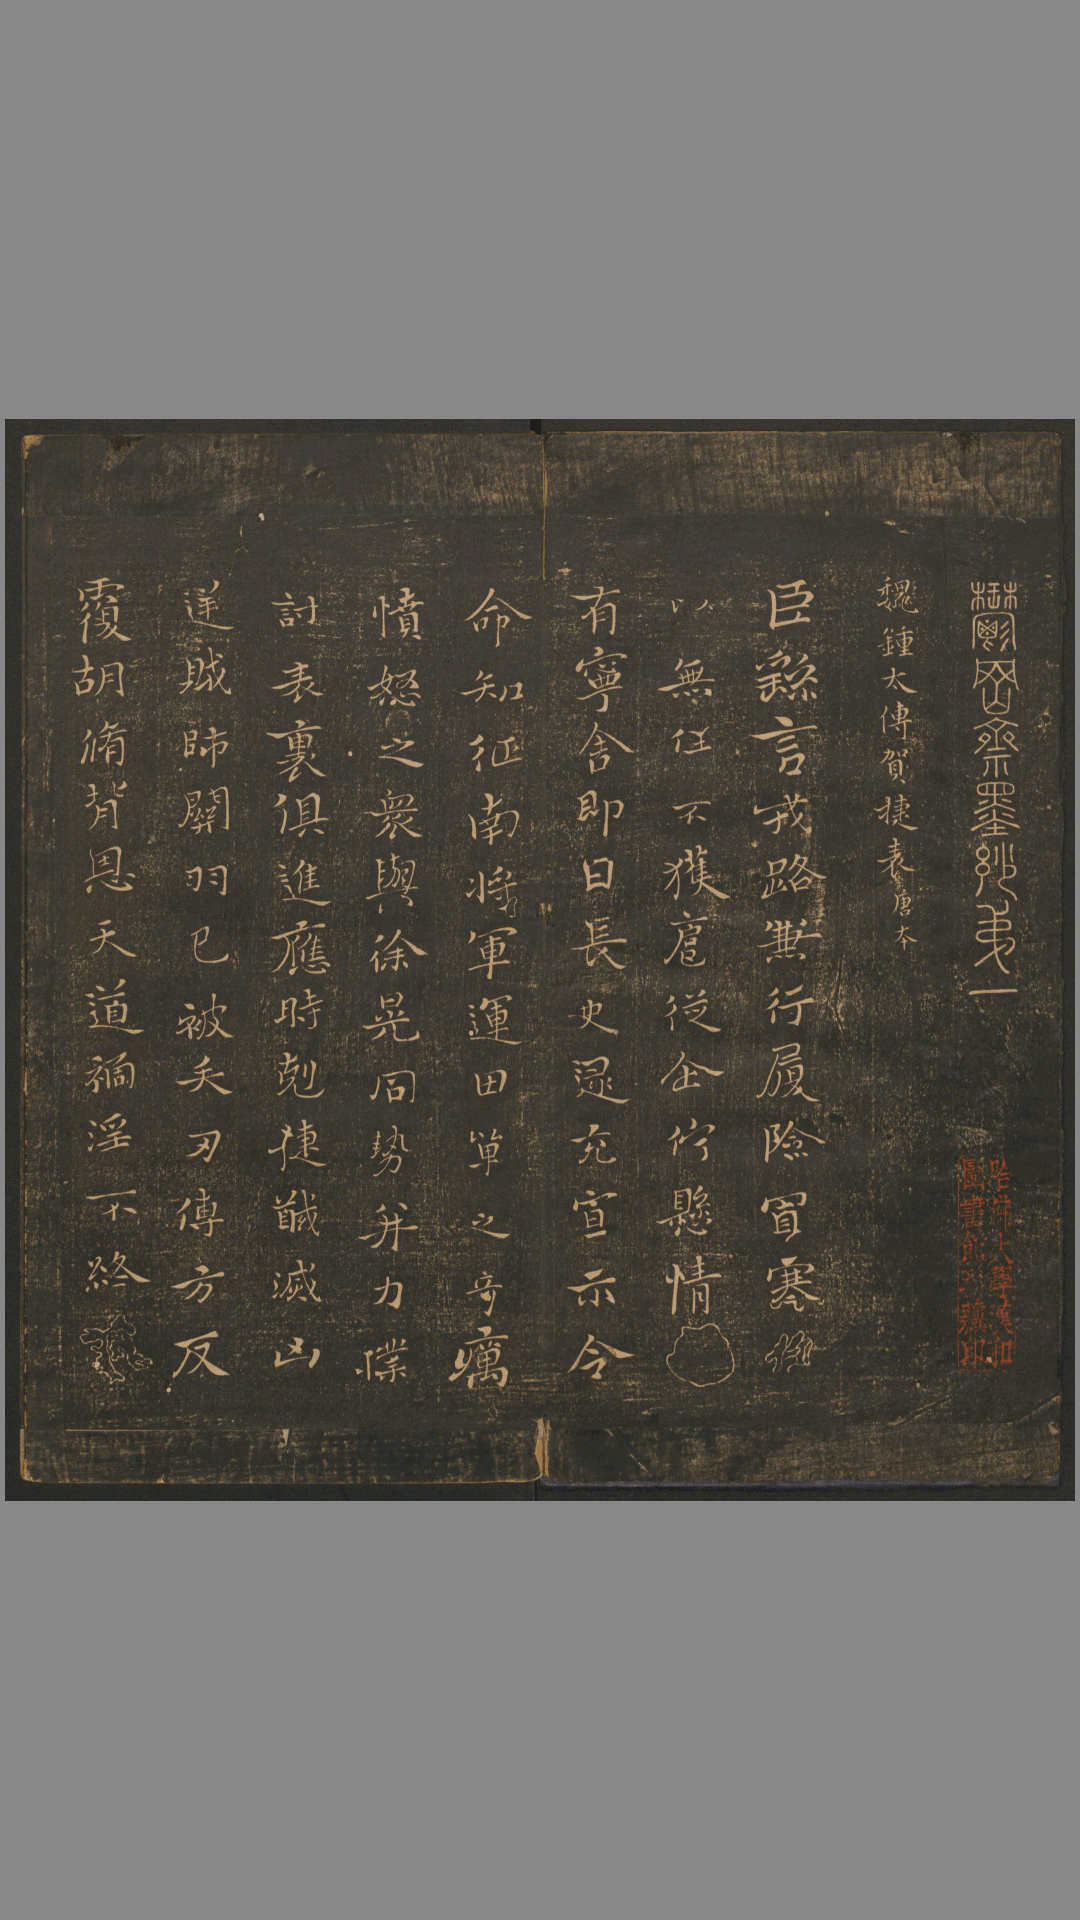 鬱岡齋墨妙第一
魏鍾太傅賀捷表唐本
臣繇言戎路兼行履險冒寒
以無任不獲扈從企佇懸情
有寧舍即日長史逯充宣示令
命知征南將軍運田單之奇厲
憤怒之衆與徐晃同勢并力㩸
討表裏俱進應時剋捷馘滅凶
逆賊帥關羽已被矢刃傅方反
覆胡脩背恩天道禍淫不終
哈佛大學漢和
圖書館珍藏印